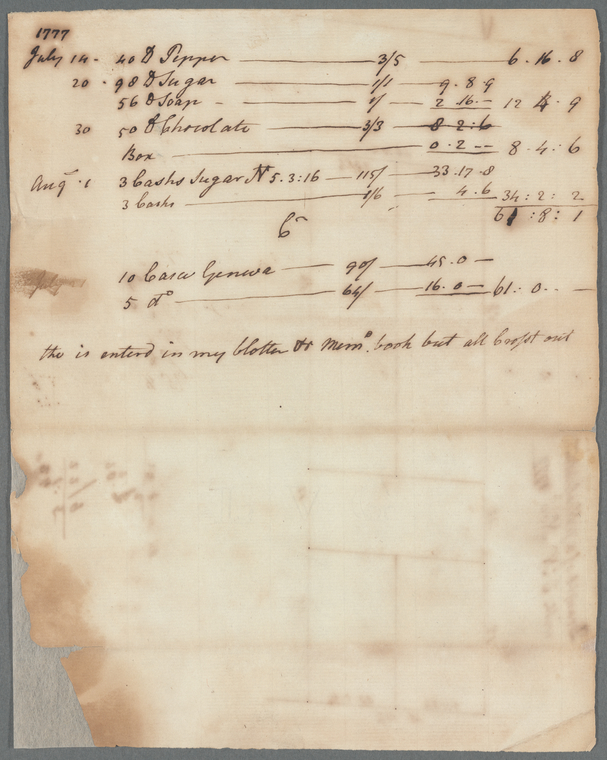 1777
July 14 - 40 lb Pepper — 3/5 — 6 . 16 . 8
20 - 98 lb Sugar — — 9 . 8 . 9
56 lb Soap - — 1/ — 2 16 . — 12 4 . 9
30 50 lb Chocolate — 3/3 — 8 2 : 6
Box — 0 . 2 -- 8 . 4 . : 6
Augt . 1 3 Casks Sugar Nt 5 . 3 : 16 — 115/ — 33 . 17 . 8
3 Casks — 1/6 4 . 6 34 : 2 : 2
61 : 8 : 1
Cr
10 Case Geneva — 90/ — 45 . 0 —
5 Do — 64/ — 16 . 0 — 61 : 0 . . —
the is enterd in my blotter & Memo. book but all Crosst out